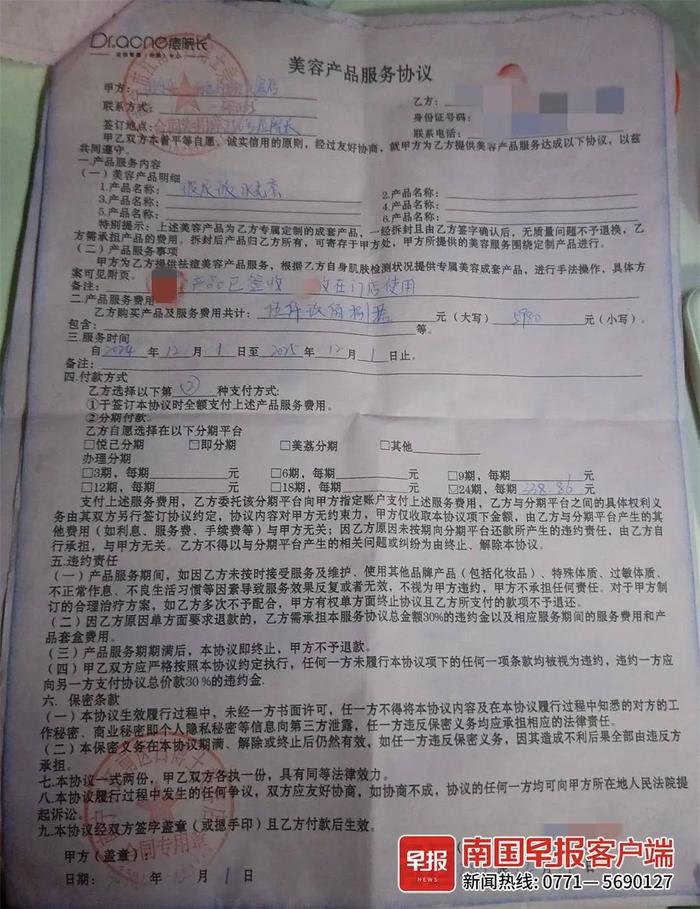 Dr.acne痘院长
美容产品服务协议
甲方：
乙方：
联系方式：
身份证号码：
签订地点：
联系电话：
甲乙双方本着平等自愿、诚实信用的原则，经过友好协商，就甲方为乙方提供美容产品服务达成以下协议，以兹
共同遵守。
一.产品服务内容
（一）美容产品明细
1.产品名称：
2.产品名称：
3.产品名称：
4.产品名称：
5.产品名称：
6.产品名称：
特别提示：上述美容产品为乙方专属定制的成套产品，一经拆封且由乙方签字确认后，无质量问题不予退换，乙
方需承担产品的费用。拆封后产品归乙方所有，可寄存于甲方处，甲方所提供的美容服务围绕定制产品进行。
（二）产品服务事项
甲方为乙方提供祛痘美容产品服务，根据乙方自身肌肤检测状况提供专属美容成套产品，进行手法操作，具体方
案可见附页。
备注： 产品已签收 在门店使用
二.产品服务费用
乙方购买产品及服务费用共计：伍仟玖佰捌拾 元（大写）5980 元（小写）。
包含： 等。
三.服务时间
自2024年12月1日至2025年12月1日止。
备注：
四.付款方式
乙方选择以下第②种支付方式：
①于签订本协议时全额支付上述产品服务费用。
②分期付款。
乙方自愿选择在以下分期平台
□悦己分期 □即分期 □美荔分期 □其他
办理分期
□3期，每期 元 □6期，每期 元 □9期，每期 元
□12期，每期 元 □18期，每期 元 □24期，每期 338.86 元
支付上述服务费用，乙方委托该分期平台向甲方指定账户支付上述服务费用，乙方与分期平台之间的具体权利义
务由其双方另行签订协议约定，协议内容对甲方无约束力，甲方仅收取本协议项下金额，由乙方与分期平台产生的其
他费用（如利息、服务费、手续费等）与甲方无关；因乙方原因未按期向分期平台还款所产生的违约责任，由乙方自
行承担，与甲方无关。乙方不得以与分期平台产生的相关问题或纠纷为由终止、解除本协议。
五.违约责任
（一）产品服务期间，如因乙方未按时接受服务及维护、使用其他品牌产品（包括化妆品）、特殊体质、过敏体质、
不正常作息、不良生活习惯等因素导致服务效果反复或者无效，不视为甲方违约，甲方不承担任何责任。对于甲方制
订的合理治疗方案，如乙方多次不予配合，甲方有权单方面终止协议且乙方所支付的款项不予退还。
（二）因乙方原因单方面要求退款的，乙方需承担本服务协议总金额30%的违约金以及相应服务期间的服务费用和产
品套盒费用。
（三）产品服务期期满后，本协议即终止，甲方不予退款。
（四）甲乙双方应严格按照本协议约定执行，任何一方未履行本协议项下的任何一项条款均被视为违约，违约一方应
向另一方支付协议总价款30%的违约金.
六. 保密条款
（一）本协议生效履行过程中，未经一方书面许可，任一方不得将本协议内容及在本协议履行过程中知悉的对方的工
作秘密、商业秘密即个人隐私秘密等信息向第三方泄露，任一方违反保密义务均应承担相应的法律责任。
（二）本保密义务在本协议期满、解除或终止后仍然有效，如任一方违反保密义务，因其造成不利后果全部由违反方
承担。
七.本协议一式两份，甲乙双方各执一份，具有同等法律效力。
八.本协议履行过程中发生的任何争议，双方应友好协商，如协商不成，协议的任何一方均可向甲方所在地人民法院提
起诉讼。
九.本协议经双方签字盖章（或摁手印）且乙方付款后生效。
甲方（盖章）：
日期： 年 月1日
合同专用章
早报 南国早报客户端
新闻热线：0771—5690127